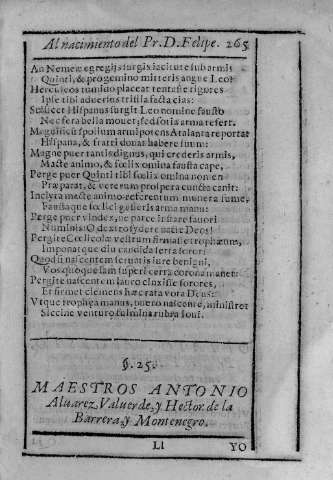 Al nacimiento del Pr. D. Felipe. 265
An Nemeæ egregijs surgis
Quinti, & progemino mitteris angue Leo?
Herculeos tumido placeat tentasse rigores
Ipse tibi
Scilicet Hispanus surgit Leo nomine fausto
Nec fera bella mouet, sed
Magnificũ spolium armipotens Atalanta reportat
Hispana, & fratri donat habere suum:
Magne puer tantis dignus, qui crederis armis,
Macte animo, & fœlix omina fausta cape,
Perge puer Quinti tibi fœlix omina nomen
Præparat, & veterum prospera cuncta canit:
Inclyta macte animo referentum munera sume,
Faustaque fœlici gesseris arma manu:
Perge puer vindex, ne parce instare fauori
Numinis: O dextro sydere nate Deos!
Pergite Cœlicolæ vestrum firmate trophæum,
Imponatque diu candida serra foror:
Quod si nascentem seruatis iure benigni,
Vos quoque iam superi certa corona manet:
Pergite nascentem lauro cinxisse sorores,
Et firmet clemens hæc rata vota Deus:
Vtque trophæa manus, puero nascente, ministret
Siccine venturo fulmina rubra Ioui.
§. 25.
MAESTROS ANTONIO
Aluarez, Valuerde, y Hector de la
Barrera, y Montenegro.
Ll YO